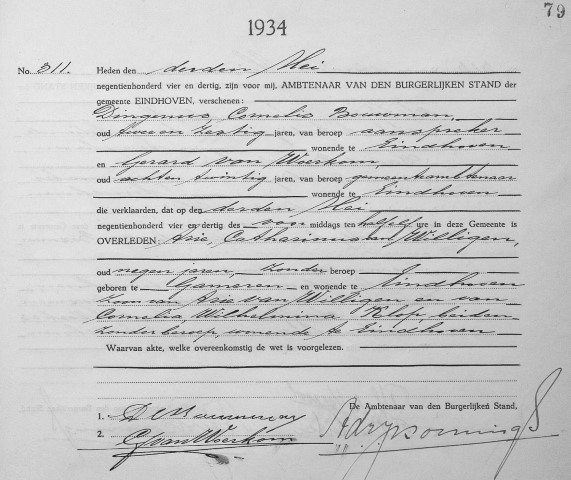 79
1934
No. 311. Heden den derden Mei
negentienhonderd vier en dertig, zijn voor mij, AMBTENAAR VAN DEN BURGERLIJKEN STAND der
gemeente EINDHOVEN, verschenen:
Dingenus, Cornelis Bouwman,
oud twee en zestig jaren, van beroep aanspreker
wonende te Eindhoven
en Gerard van Woerkom,
oud acht en twintig jaren, van beroep gemeenteambtenaar
wonende te Eindhoven
die verklaarden, dat op den derden Mei
negentienhonderd vier en dertig des voor middags ten half elf ure in deze Gemeente is
OVERLEDEN: Arie, Catharinus van Willigen,
oud negen jaren, zonder beroep
geboren te Gameren en wonende te Eindhoven
zoon van Arie van Willigen en van
Cornelia Wilhelmina Klop, beiden
zonder beroep, wonende te Eindhoven
Waarvan akte, welke overeenkomstig de wet is voorgelezen.
De Ambtenaar van den Burgerlijken Stand,
1.
2. G van Woerkom